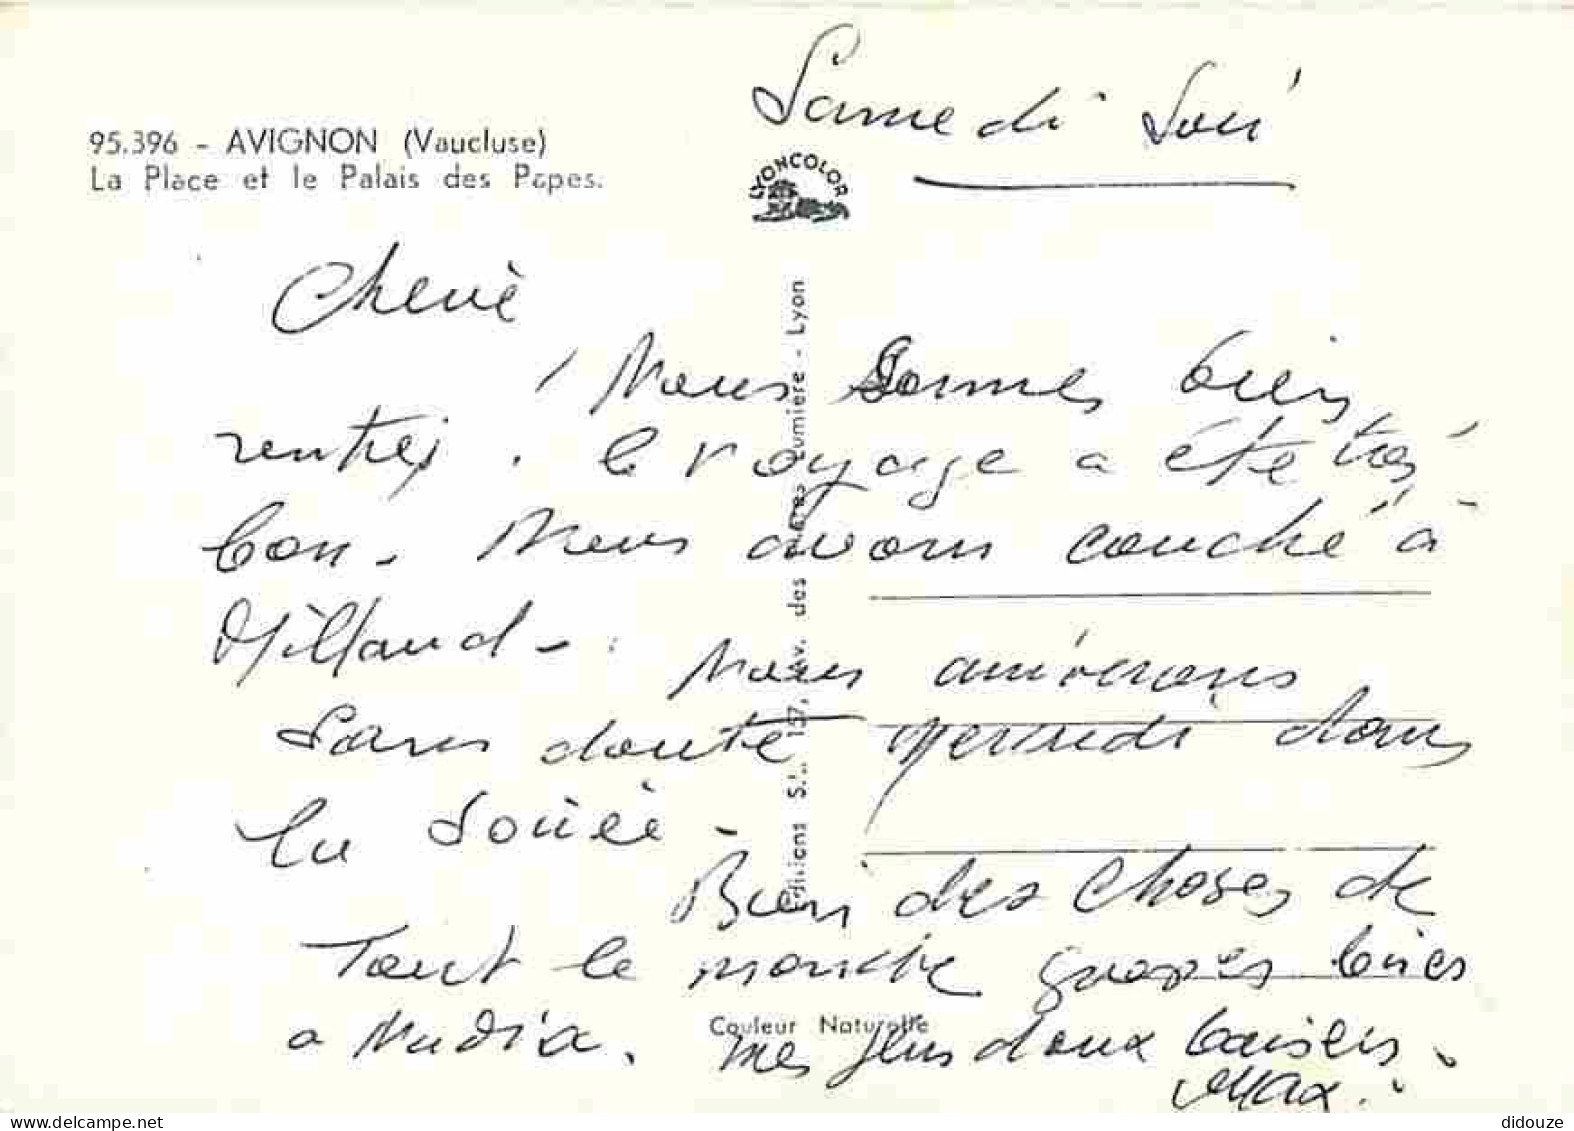 Samedi Soir
95.396 - AVIGNON (Vaucluse)
La Place et le Palais des Papes.
LYONCOLOR
Chérie
Nous sommes bien
rentrés. le voyage a été très
bon. Nous avons couché à
Millaud -
Nous arriverons
Sans doute vendredi dans
la soirée -
Bien des choses de
tout le monde grosses bises
a Nadia. mes plus doux baisers.
Max.
Editions S.L. 157, av. des Frères Lumière - Lyon
Couleur Naturelle
didouze